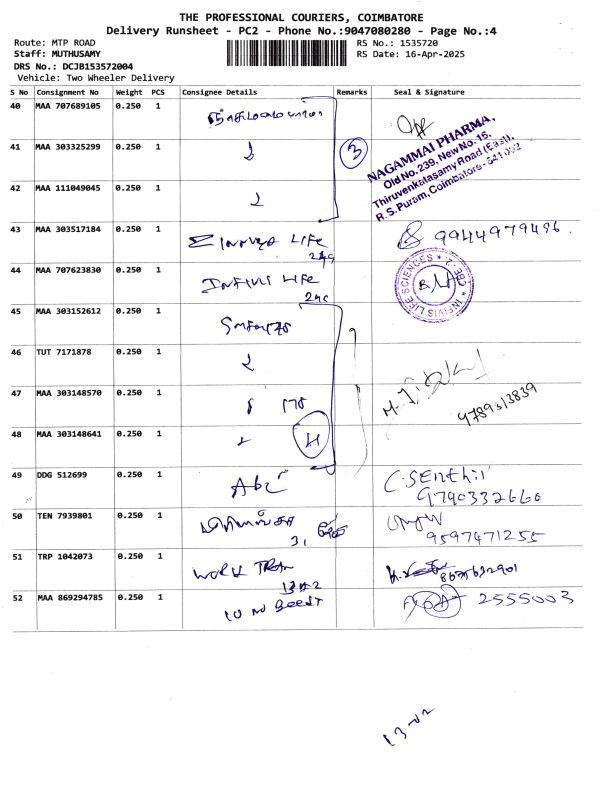 THE PROFESSIONAL COURIERS, COIMBATORE
Delivery Runsheet - PC2 - Phone No.:9047080280 - Page No.:4
Route: MTP ROAD RS No.: 1535720
Staff: MUTHUSAMY RS Date: 16-Apr-2025
DRS No.: DCJB153572004
Vehicle: Two Wheeler Delivery
S No Consignment No Weight PCS Consignee Details Remarks Seal & Signature
40 MAA 707689105 0.250 1
41 MAA 303325299 0.250 1 3
NAGAMMAI PHARMA,
Old No. 239, New No. 15,
Thiruvenkatasamy Road (East),
R.S. Puram, Coimbatore - 641 002
42 MAA 111049045 0.250 1
43 MAA 303517184 0.250 1 LIFE 9944979496
44 MAA 707623830 0.250 1 LIFE
INFIVIS LIFE SCIENCES * CBE-2 *
45 MAA 303152612 0.250 1
46 TUT 7171878 0.250 1
47 MAA 303148570 0.250 1 178 9789313839
48 MAA 303148641 0.250 1 4
49 DDG 512699 0.250 1 C. Senthil
9790332660
50 TEN 7939801 0.250 1
9597471255
51 TRP 1042073 0.250 1 WORLD
52 MAA 869294785 0.250 1 2555003
13-02